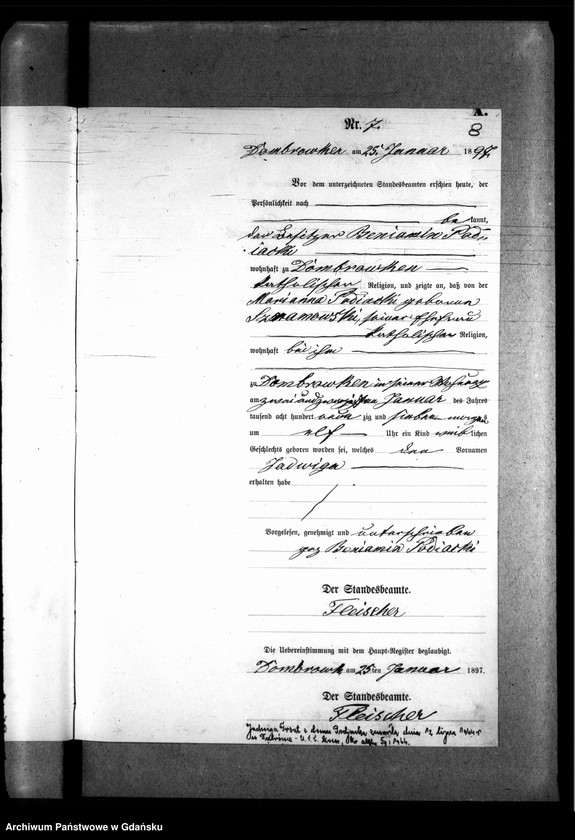 A.
Nr. 7.
8
Dombrowken am 25. Januar 1897.
Vor dem unterzeichneten Standesbeamten erschien heute, der
Persönlichkeit nach
be kannt,
der Besitzer Beniamin Pod-
iacki
wohnhaft zu Dombrowken
katholischer Religion, und zeigte an, daß von der
Marianna Podiacki geborenen
seiner Ehefrau
katholischer Religion,
wohnhaft bei ihm
zu Dombrowken in seiner Wohnung
am zwei und zwanzigsten Januar des Jahres
tausend acht hundert neun zig und sieben
um elf Uhr ein Kind weiblichen
Geschlechts geboren worden sei, welches den Vornamen
Jadwiga
erhalten habe
Vorgelesen, genehmigt und unterschrieben
gez Beniamin Podiacki
Der Standesbeamte.
Fleischer
Die Uebereinstimmung mit dem Haupt-Register beglaubigt.
Dombrowk am 25ten Januar 1897.
Der Standesbeamte.
Fleischer
Jadwiga z domu zmarła dnia 12 lipca
Archiwum Państwowe w Gdańsku